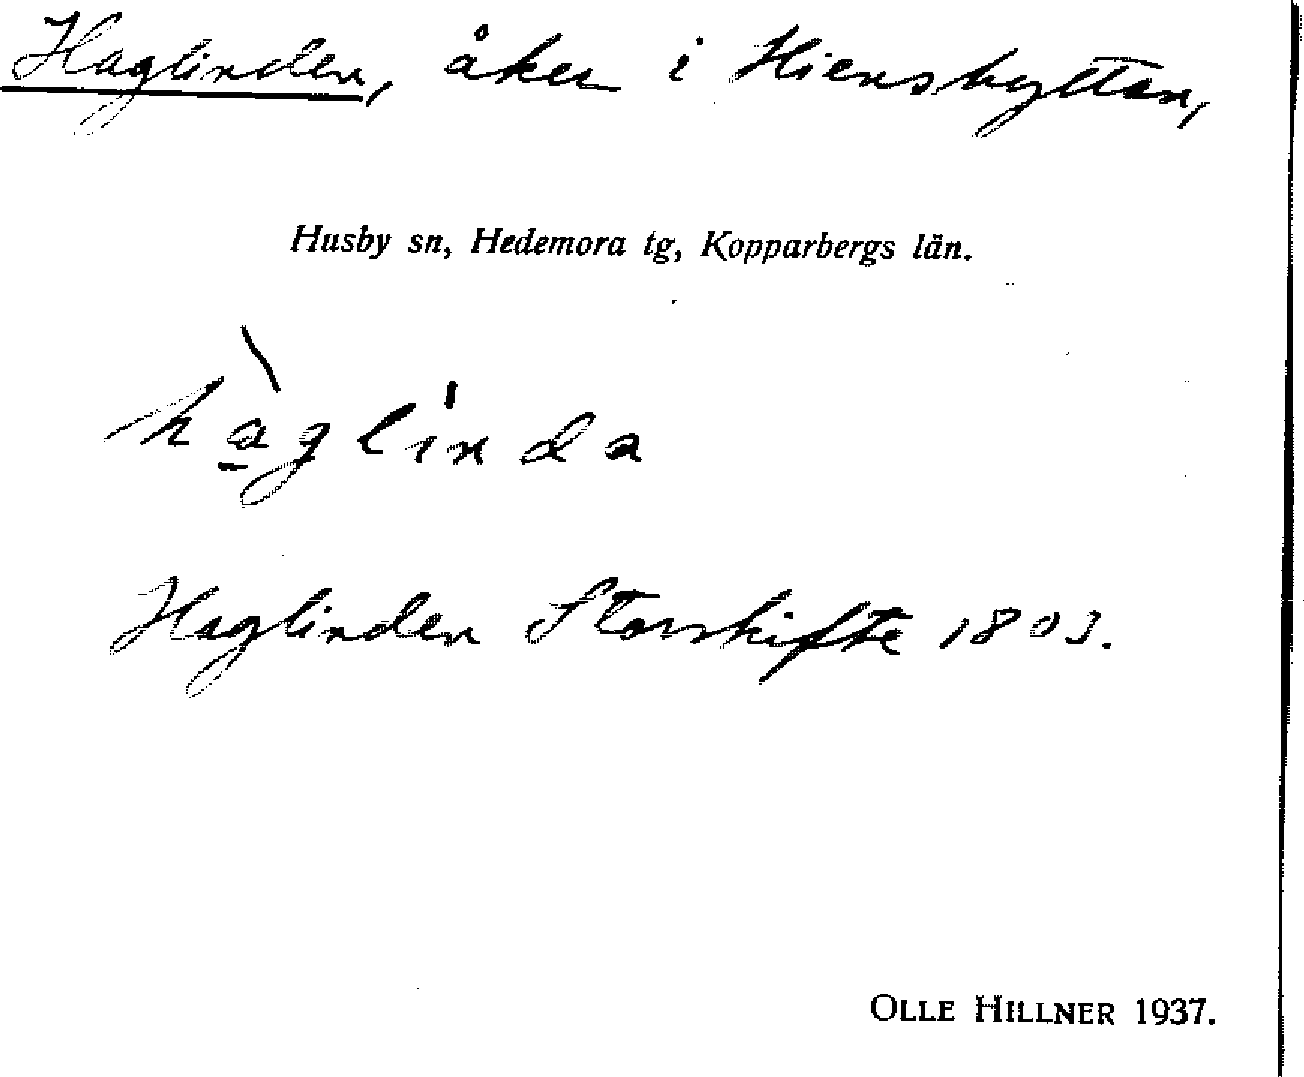 Haglinden, åker i Hienshyttan,
Husby sn, Hedemora tg, Kopparbergs län.
hàglinda
Haglinden Storskifte 1803.
OLLE HILLNER 1937.